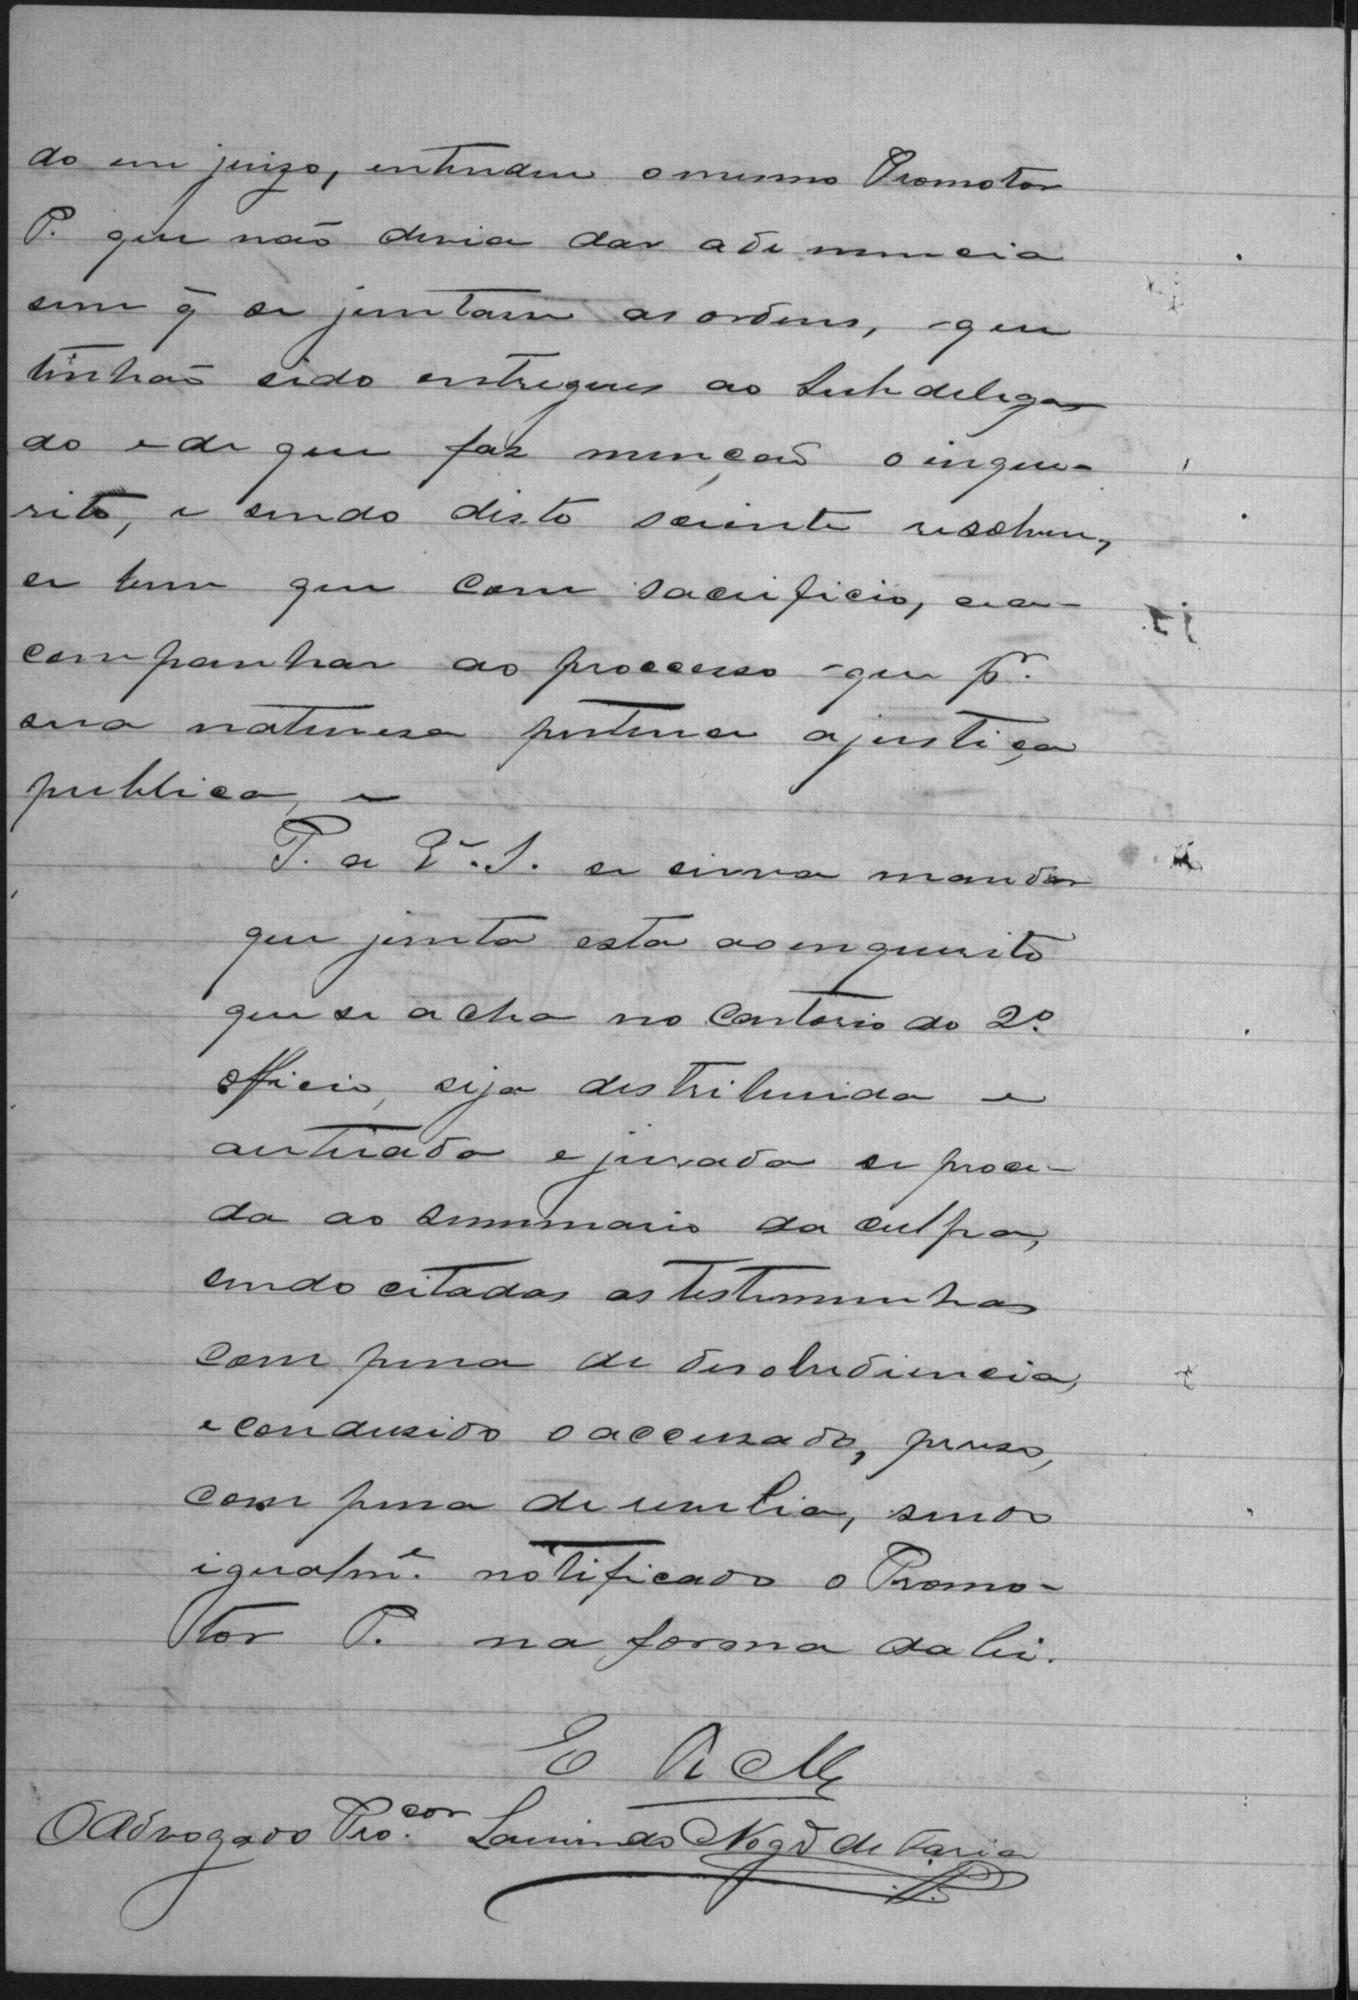 do em juizo, entendeu o mesmo Promotor
P. que não devia dar a denuncia
sem q̃ se juntasem as ordens, que
tinhão sido entregues ao Subdelega
do e de que faz menção o inque-
rito, e sendo disto sciente resolveu,
se bem que com sacrificio, a a-
companhar ao processo que pr.
sua naturesa pertence a justiça
publica, e
P. a Va. S. se sirva mandar
que junta esta ao enquerito
que se acha no Cartorio do 2º
officio, seja destribuida e
autuada e jurada se proce-
da ao summario da culpa,
sendo citadas as testemunhas
com pena de desobediencia,
e condusido o accusado, preso,
com pena de revelia, sendo
igualme. notificado o Promo-
tor P. na forma da lei.
E R Mce
O Advogado Procor. Laurindo Nogra de Faria